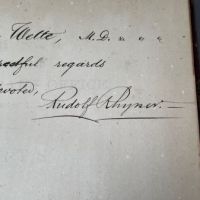 Wette, M.D. " " "
ectful regards
evoted,
Rudolf Rhyner.